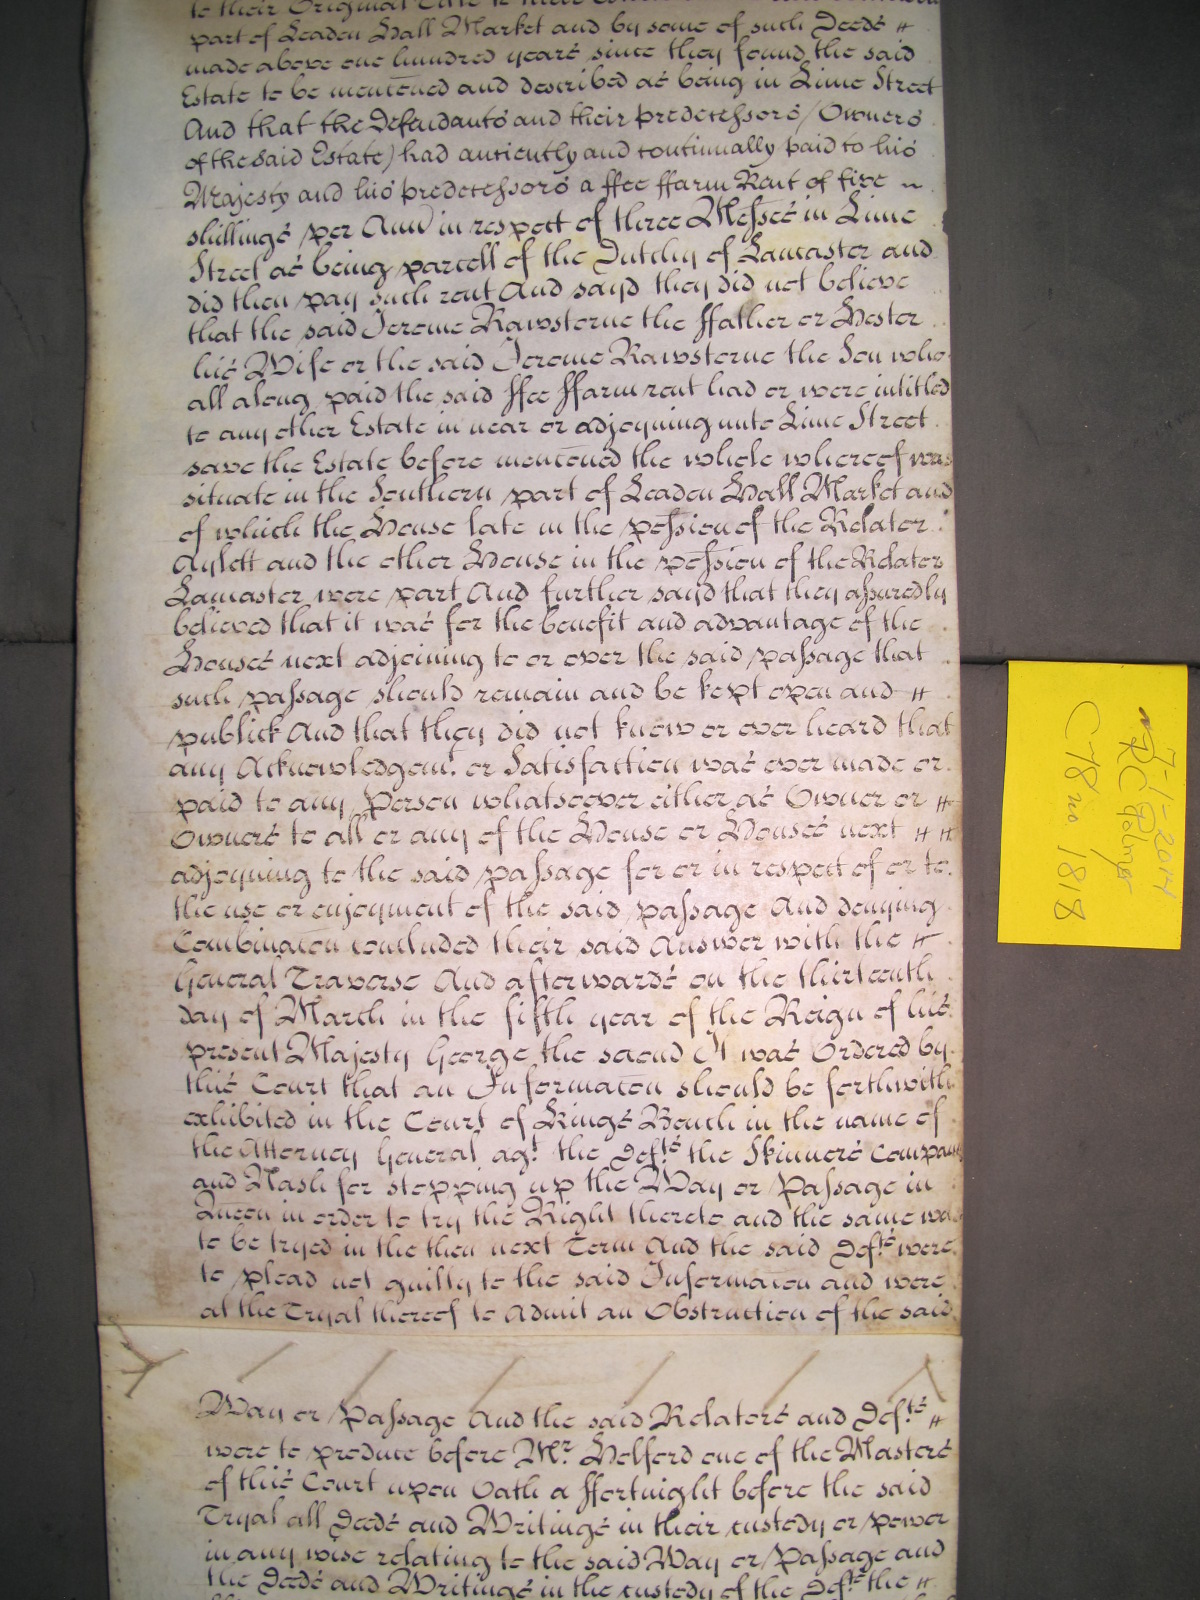 to their Original Title to
part of Leaden Hall Market and by some of such Deeds
made above one hundred years since they found the said
Estate to be menconed and described as being in Lime Street
And that the Defendants and their predecessors (Owners
of the said Estate) had antiently and continually paid to his
Majesty and his predecessors a ffee ffarm Rent of five
shillings per Ann in respect of three Messes in Lime
Street as being parcell of the Dutchy of Lancaster and
did then pay such rent And sayd they did not believe
that the said Jerome Rawsterne the ffather or Hester
his Wife or the said Jerome Rawsterne the Son who
all along paid the said ffee ffarm rent had or were intitled
to any other Estate in near or adjoyning unto Lime Street
save the Estate before menconed the whole whereof was
situate in the Southern part of Leaden Hall Market and
of which the House late in the possion of the Relator
Aylett and the other House in the possion of the Relator
Lancaster were part And further sayd that they assuredly
believed that it was for the benefit and advantage of the
Houses next adjoining to or over the said passage that
such passage should remain and be kept open and
publick And that they did not know or ever heard that
any Acknowledgemt. or Satisfaction was ever made or
paid to any Person whatsoever either as Owner or
Owners to all or any of the House or Houses next
adjoyning to the said passage for or in respect of or to
the use or enjoyment of the said passage And denying
Combinacon concluded their said Answer with the
General Traverse And afterwards on the thirteenth
day of March in the fifth year of the Reign of his
present Majesty George the second It was Ordered by
this Court that an Informacon should be forthwith
exhibited in the Court of Kings Bench in the name of
the Attorney General agt. the Defts. the Skinners Company
and Nash for stopping up the Way or Passage in
Queon in order to try the Right thereto and the same was
to be tryed in the then next Term And the said Defts. were
to plead not guilty to the said Informacon and were
at the Tryal thereof to Admit an Obstruction of the said
Way or Passage And the said Relators and Defts.
were to produce before Mr. Holford one of the Masters
of this Court upon Oath a ffortnight before the said
Tryal all Deeds and Writings in their custody or power
in any wise relating to the said Way or Passage and
the Deeds and Writings in the custody of the Defts. the
7-1-2014
C 78 no 1818